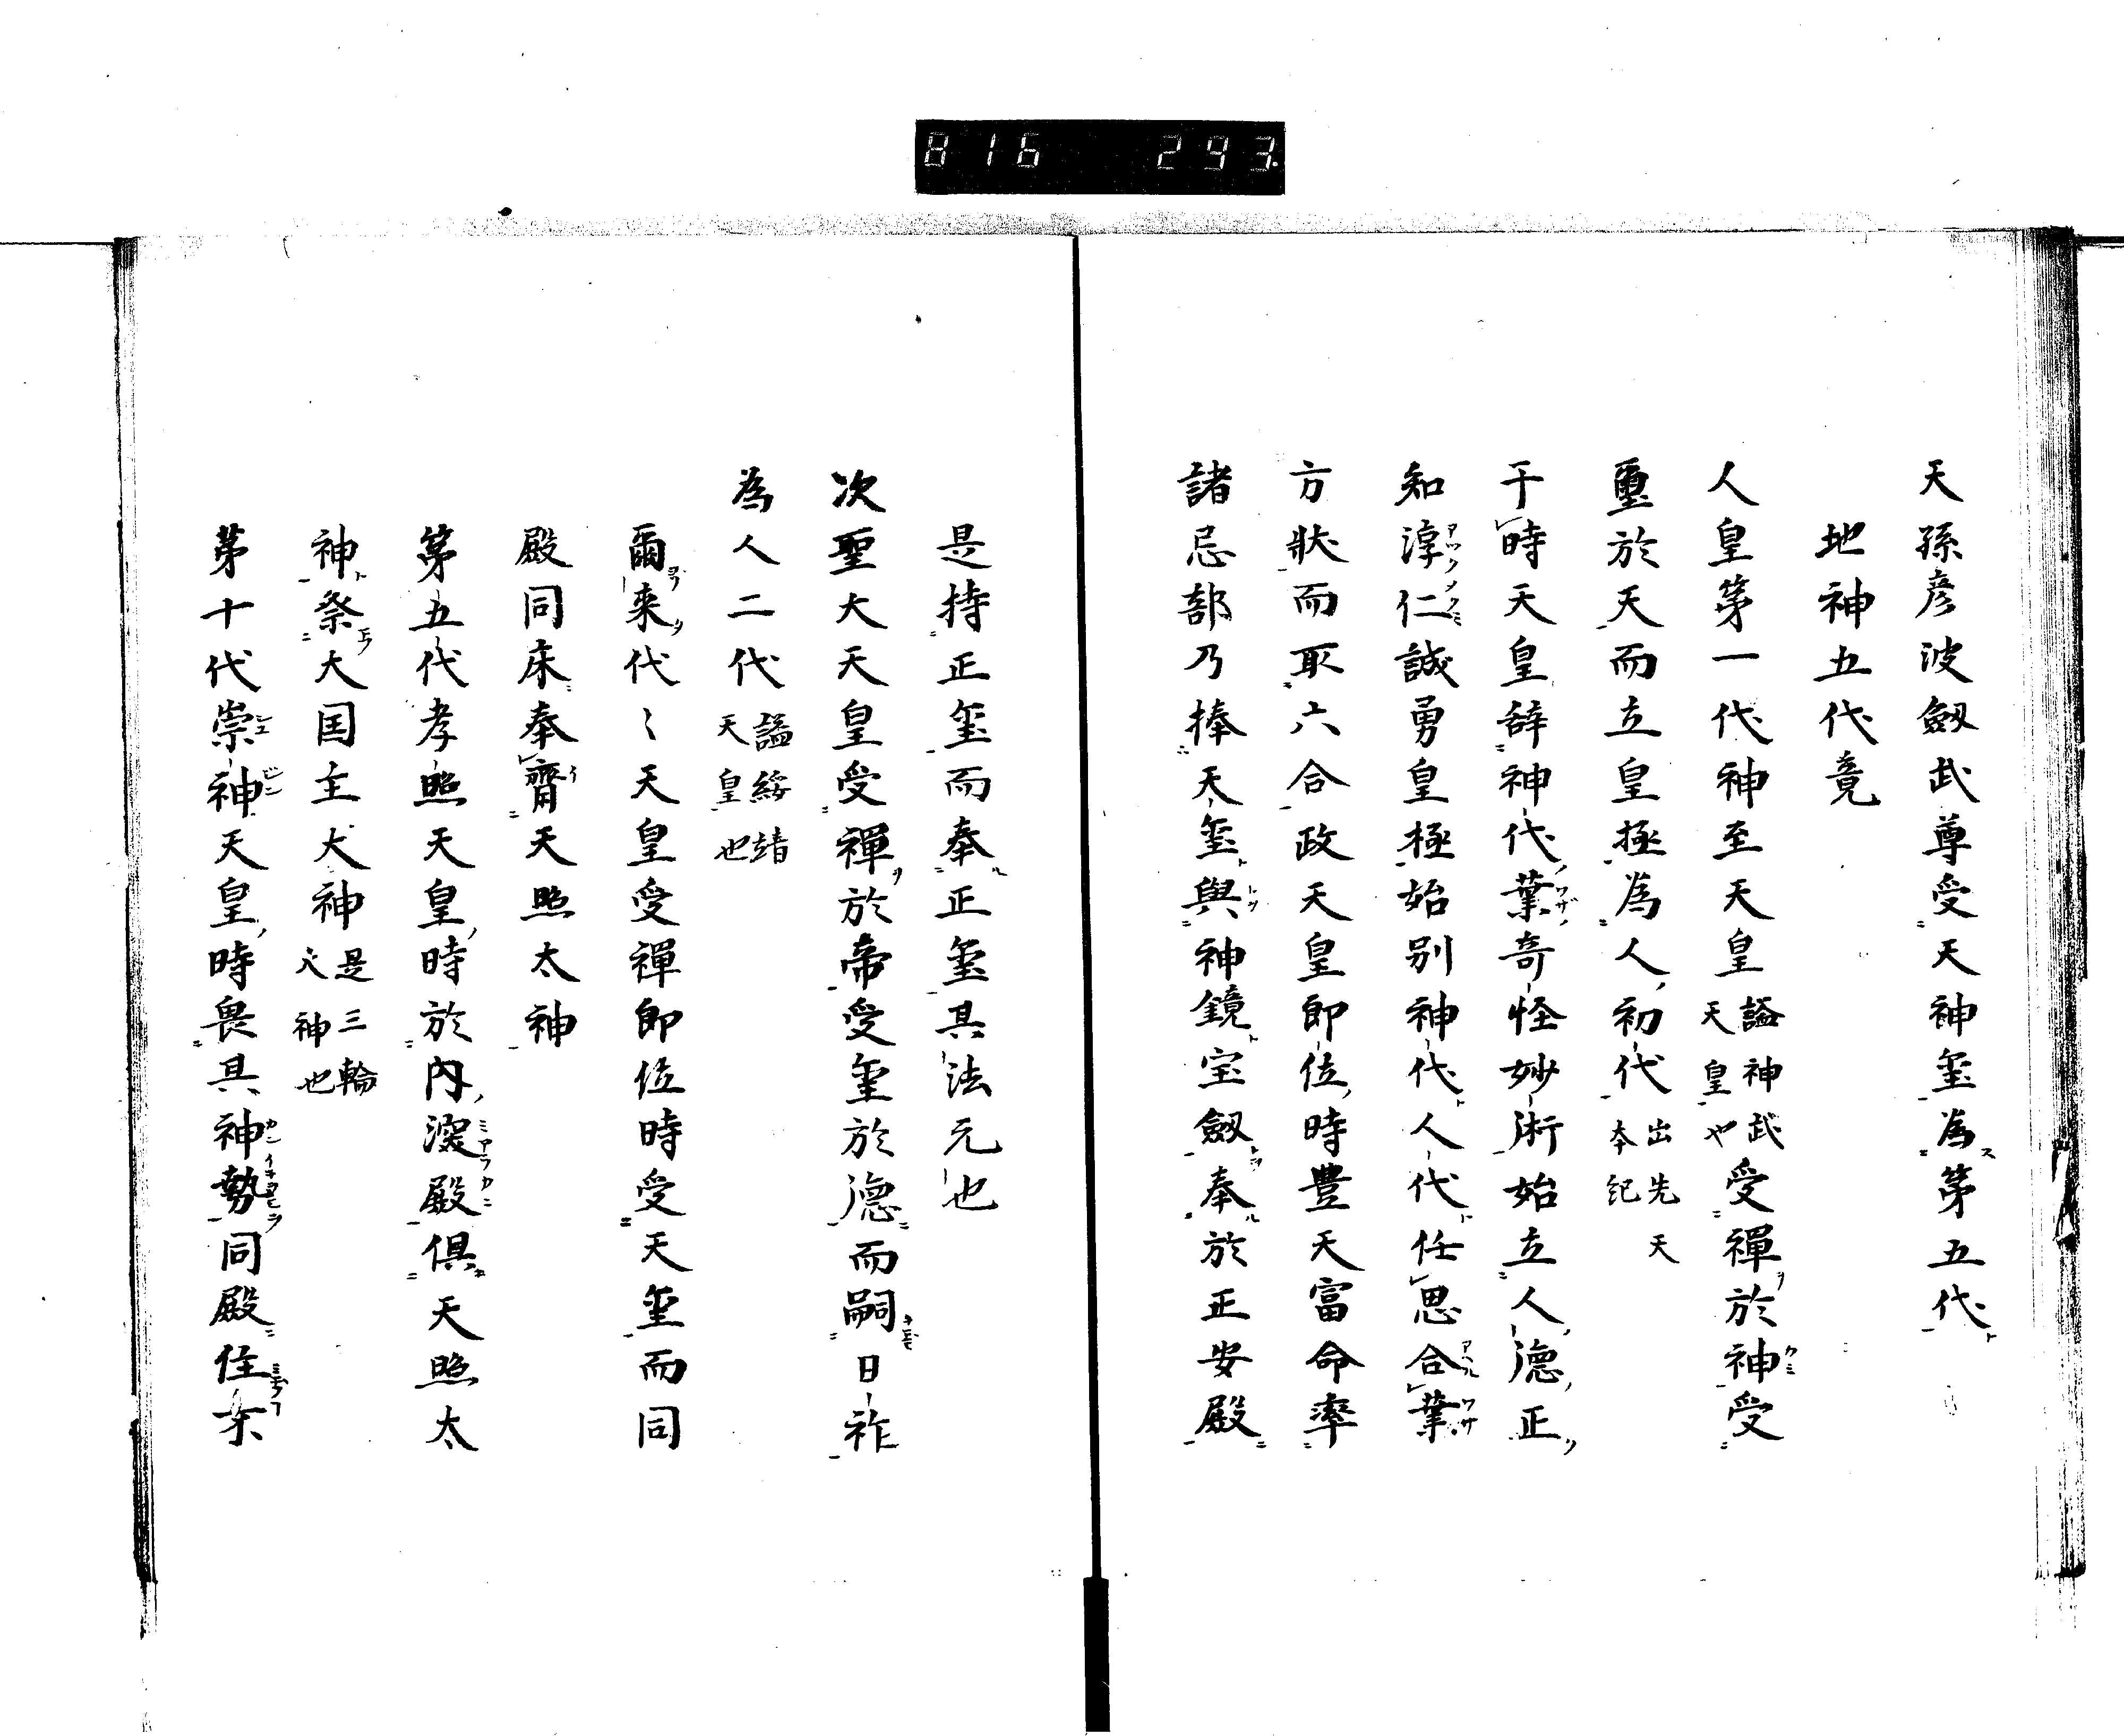 816 293
天孫彦波劔武尊受天神玺為第五代
地神五代竟
人皇第一代神至天皇謚神武天皇也受禪於神受
璽於天而立皇極為人初代出先天本紀
于時天皇辞神代業奇怪妙術始立人德正
知淳仁誠勇皇極始別神代人代任思合業
方狀而取六合政天皇即位時豊天富命率
諸忌部乃捧天玺與神鏡宝劔奉於正安殿
是持正玺而奉正玺其法元也
次聖大天皇受禪於帝受玺於德而嗣日祚
為人二代謚綏靖天皇也
爾来代〻天皇受禪即位時受天玺而同
殿同床奉齋天照太神
第五代孝照天皇時於內殿俱天照太
神祭大国主大神是三輪大神也
第十代崇神天皇時畏其神勢同殿住不